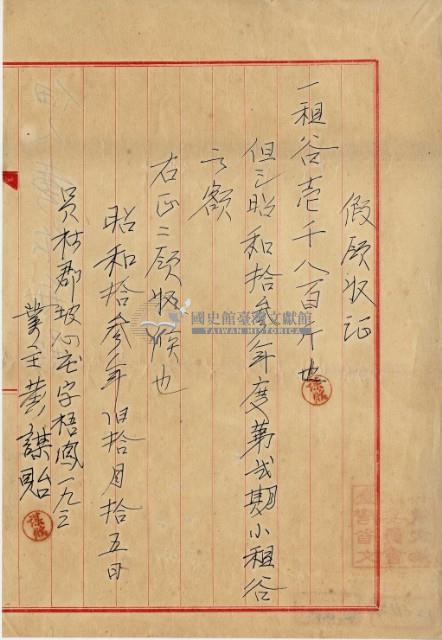 假領收証
一租谷壱千八百斤也
但シ昭和拾参年度第弐期小租谷
之額
右正ニ領收候也
昭和拾参年旧拾月拾五日
員林郡坡心庄字梧鳳一九三
業主黄謀貽
國史館臺灣文獻館
TAIWAN HISTORICA
謀貽
謀貽